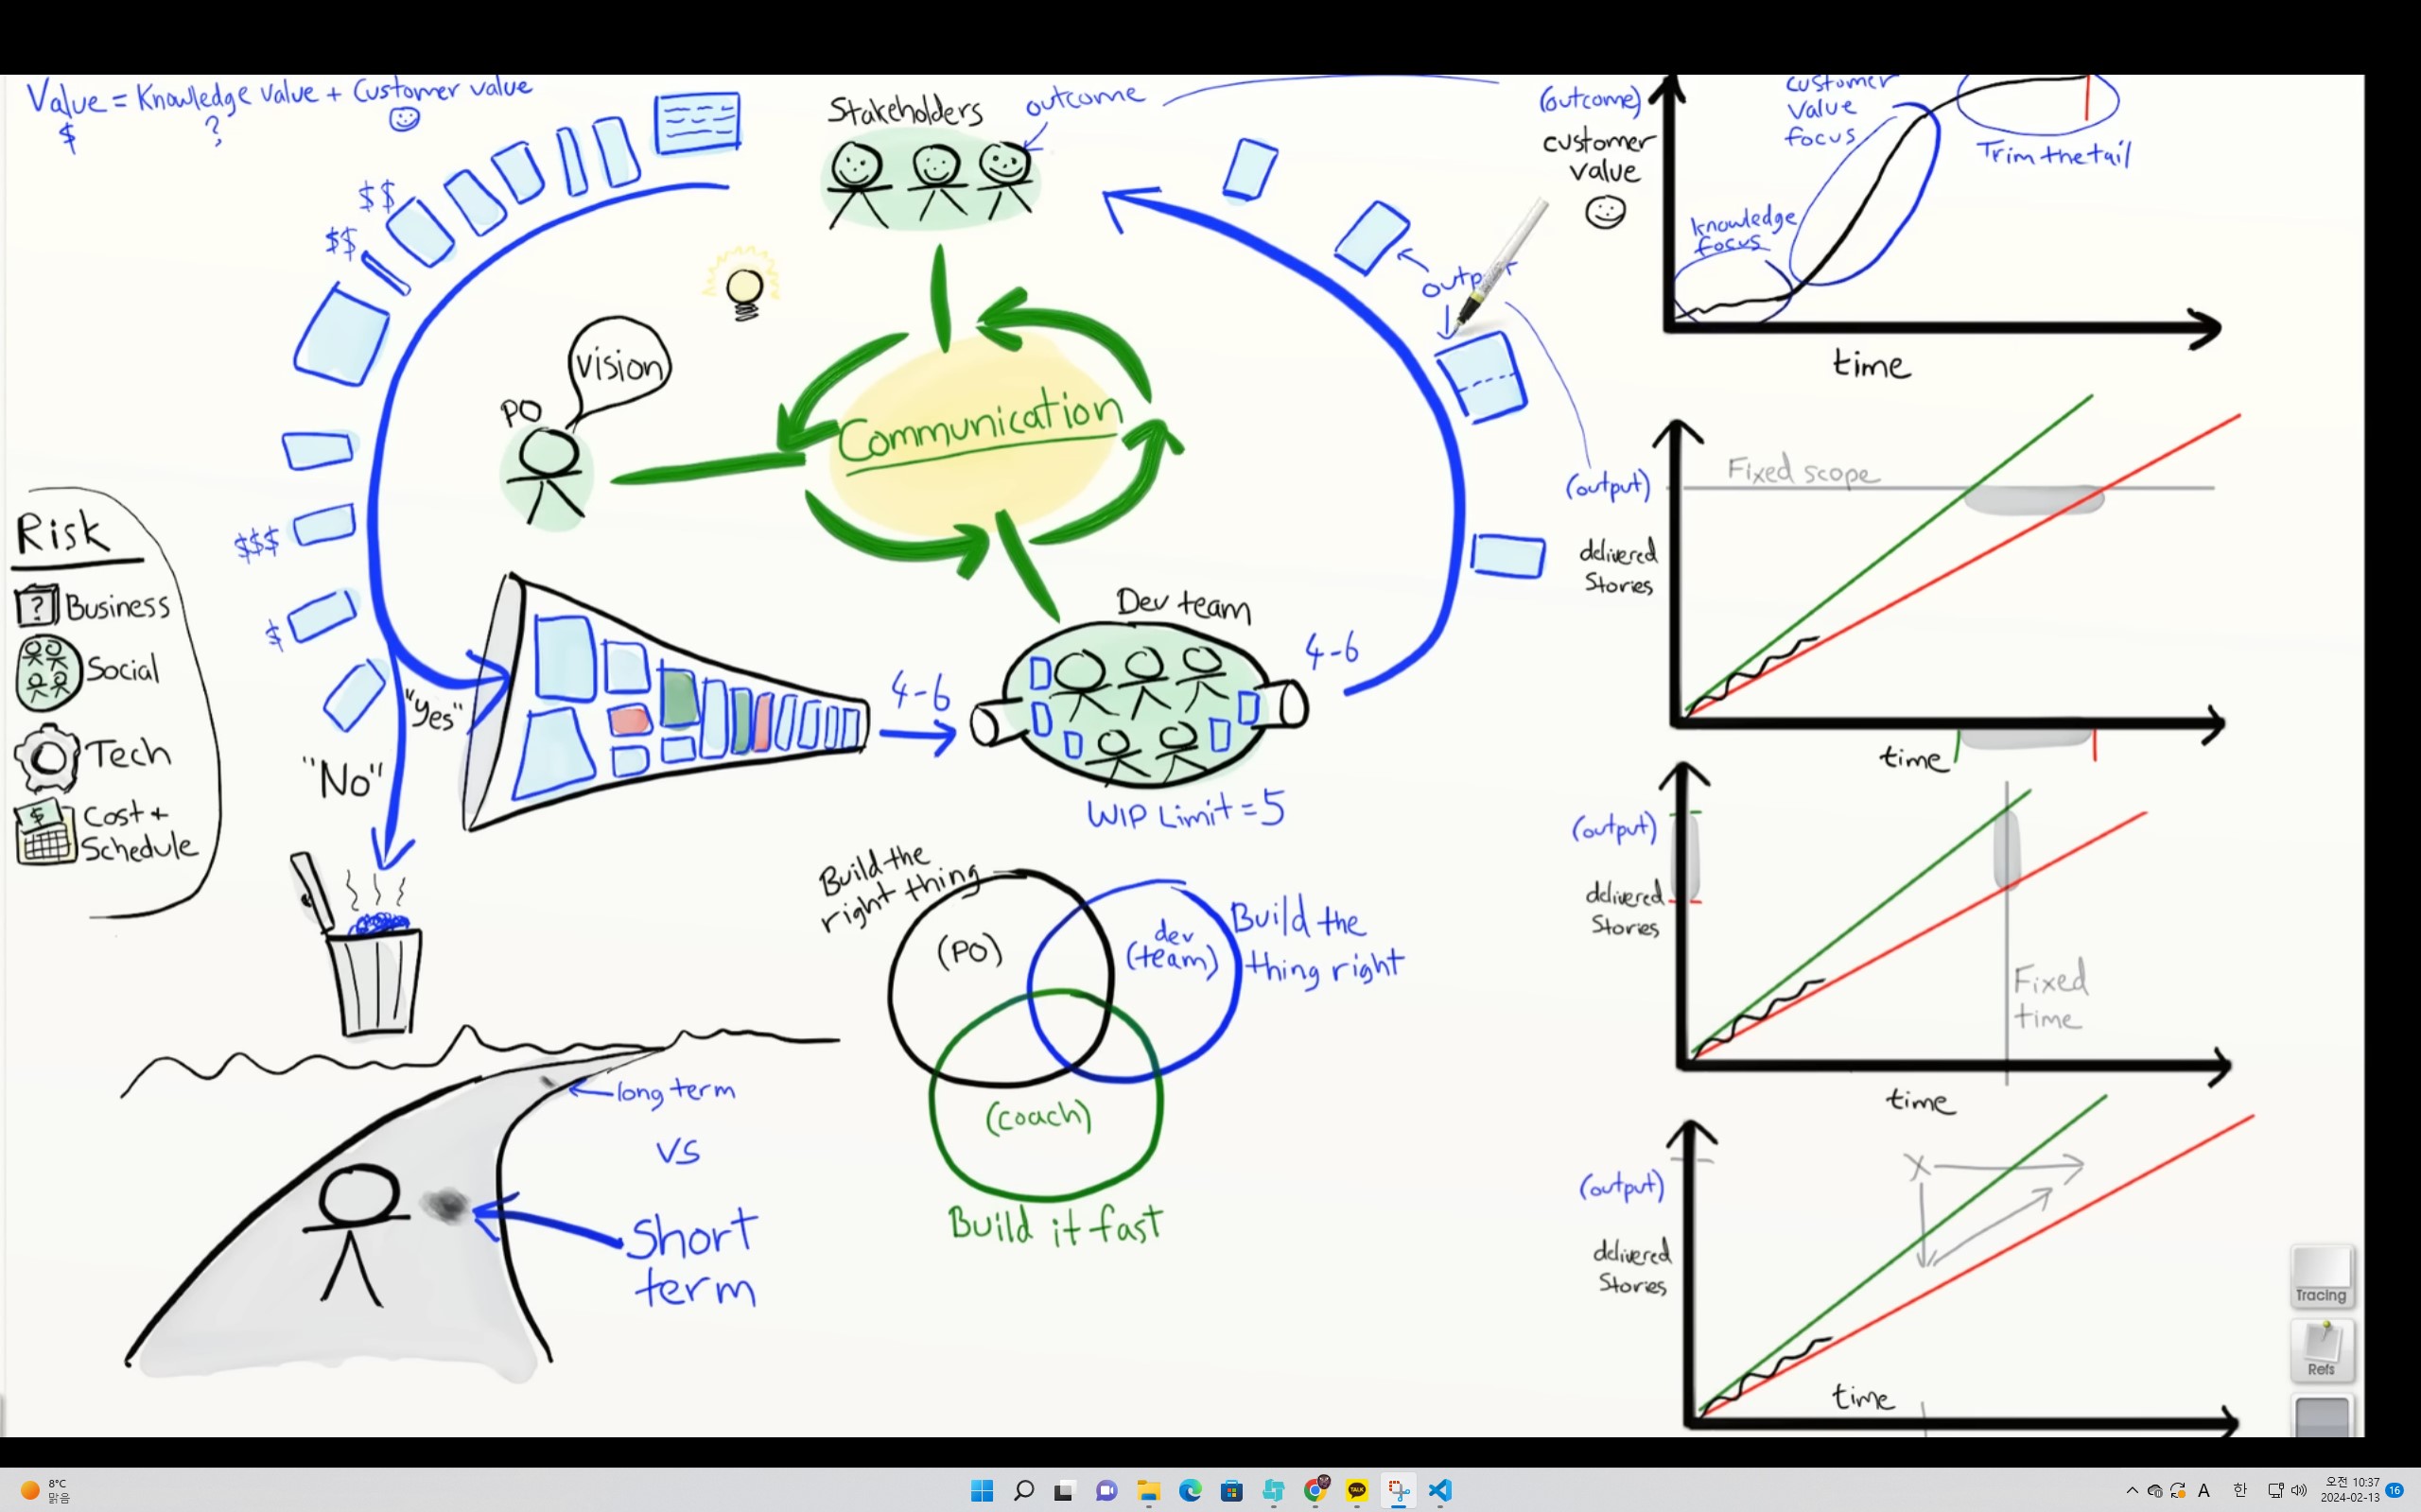 Value = Knowledge value + Customer value
$
?
$$
$$
$$$
$
Stakeholders
outcome
PO
vision
Communication
Risk
? Business
Social
Tech
$
Cost +
Schedule
"Yes"
"No"
4-6
Dev team
4-6
WIP Limit = 5
Build the
right thing
(PO)
dev
(team)
Build the
thing right
(coach)
Build it fast
long term
VS
Short
term
(outcome)
customer
value
customer
value
focus
Trim the tail
knowledge
focus
time
(output)
delivered
Stories
Fixed scope
time
(output)
delivered
Stories
Fixed
time
time
(output)
delivered
Stories
X
time
Tracing
Refs
8°C
맑음
TALK
A
한
오전 10:37
2024-02-13
16